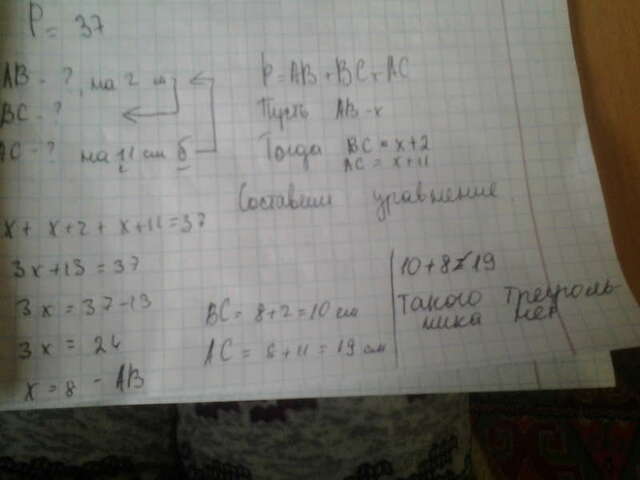 P = 37
AB - ?, на 2 м
BC - ?
AC - ? на 11 см б
P = AB + BC + AC
Пусть AB - x
Тогда BC = x+2
AC = x+11
Составим уравнение
x + x+2 + x+11 = 37
3x+13 = 37
3x = 37-13
3x = 24
x = 8 - AB
BC = 8+2 = 10 см
AC = 8+11 = 19 см
10+8<19
Такого треуголь-
ника нет